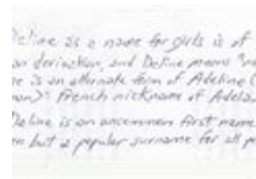 Deline as a name for girls is of
an derivation, and Deline means "no
ne is an alternate form of Adeline (
man): French nickname of Adela.
Deline is an uncommon first name
en but a popular surname for all pe